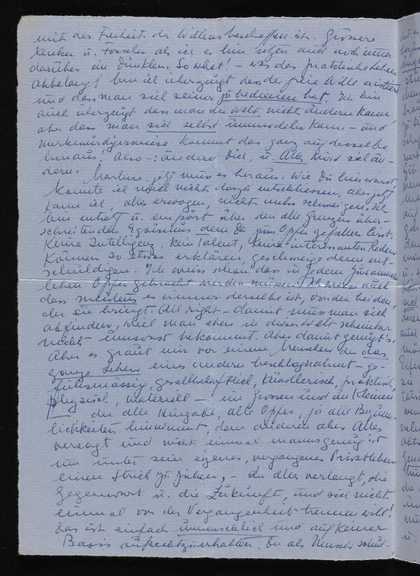 mit der Freiheit des Willens beschaffen ist. Grössere
Denker u. Forscher als ich es bin tappen auch noch immer
darüber im Dunklen. So what! – was den praktischen Leben
anbelangt bin ich überzeugt dass der freie Wille existiert
und dass man sich seiner zu bedienen hat. Ich bin
auch überzeugt dass man die Welt nicht ändern kann
aber dass man sich selbst umwandeln kann – und
merkwürdigerweise kommt das ganz auf dasselbe
heraus. Also –: ändere Dich, u. Alles wird sich än-
dern. jetzt muss es heraus. Wie Du hier warst
konnte ich mich nicht dazu entschliessen, aber jetzt
kann ich, alles erwogen, nicht mehr schweigen. Ich
bin entsetzt u. empört über den alle Grenzen über-
schreitenden Egoismus dem Du zum Opfer gefallen bist.
Keine Intelligenz, kein Talent, keine interessanten Reden
können so etwas erklären, geschweige denn ent-
schuldigen. Ich weiss schon dass in jedem Zusammen-
leben Opfer gebracht werden müssen. Ich weiss auch
dass meistens es immer derselbe ist, von den beiden
der sie bringt. All right – damit muss man sich
abfinden, weil man eben in dieser Welt scheinbar
nichts umsonst bekommt. Aber damit genügt's.
Aber es graut mir vor einem Menschen der das
ganze Leben eines andern beschlagnahmt – ge-
fühlsmässig, gesellschaftlich, künstlerisch, praktisch
physisch, materiell – im Grossen und im Kleinen
– der alle Hingabe, alle Opfer, ja alle Bequem-
lichkeiten hinnimmt, dem anderen aber Alles
versagt und nicht einmal manns genug ist
um unter sein eigenes, vergangenes Privatleben
einen Strich zu ziehen, – der alles verlangt, die
Gegenwart u. die Zukunft, und sich nicht
einmal von der Vergangenheit trennen will!
Das ist einfach unmenschlich und auf keiner
Basis aufrechtzuerhalten. Du als Mensch, must